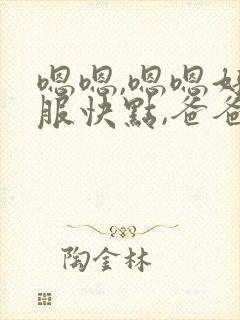 嗯嗯,嗯嗯好
服快點,爸爸
陶金林